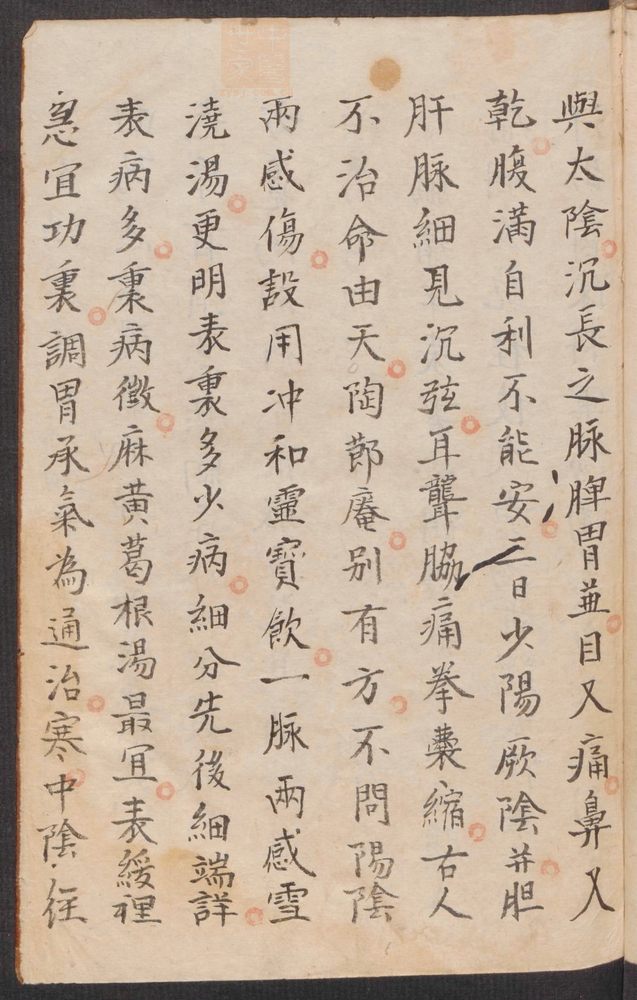 與太陰沉長之脉脾胃並目又痛鼻又
乾腹滿自利不能安三日少陽厥陰并胆
肝脉細見沉弦耳聾脇痛拳囊縮右人
不治命由天陶節庵别有方不問陽陰
兩感傷設用冲和靈寶飲一脉兩感雪
澆湯更明表裏多少病細分先後細端詳
表病多裏病微麻黄葛根湯最宜表緩裡
急宜功裏調胃承氣為通治寒中陰経